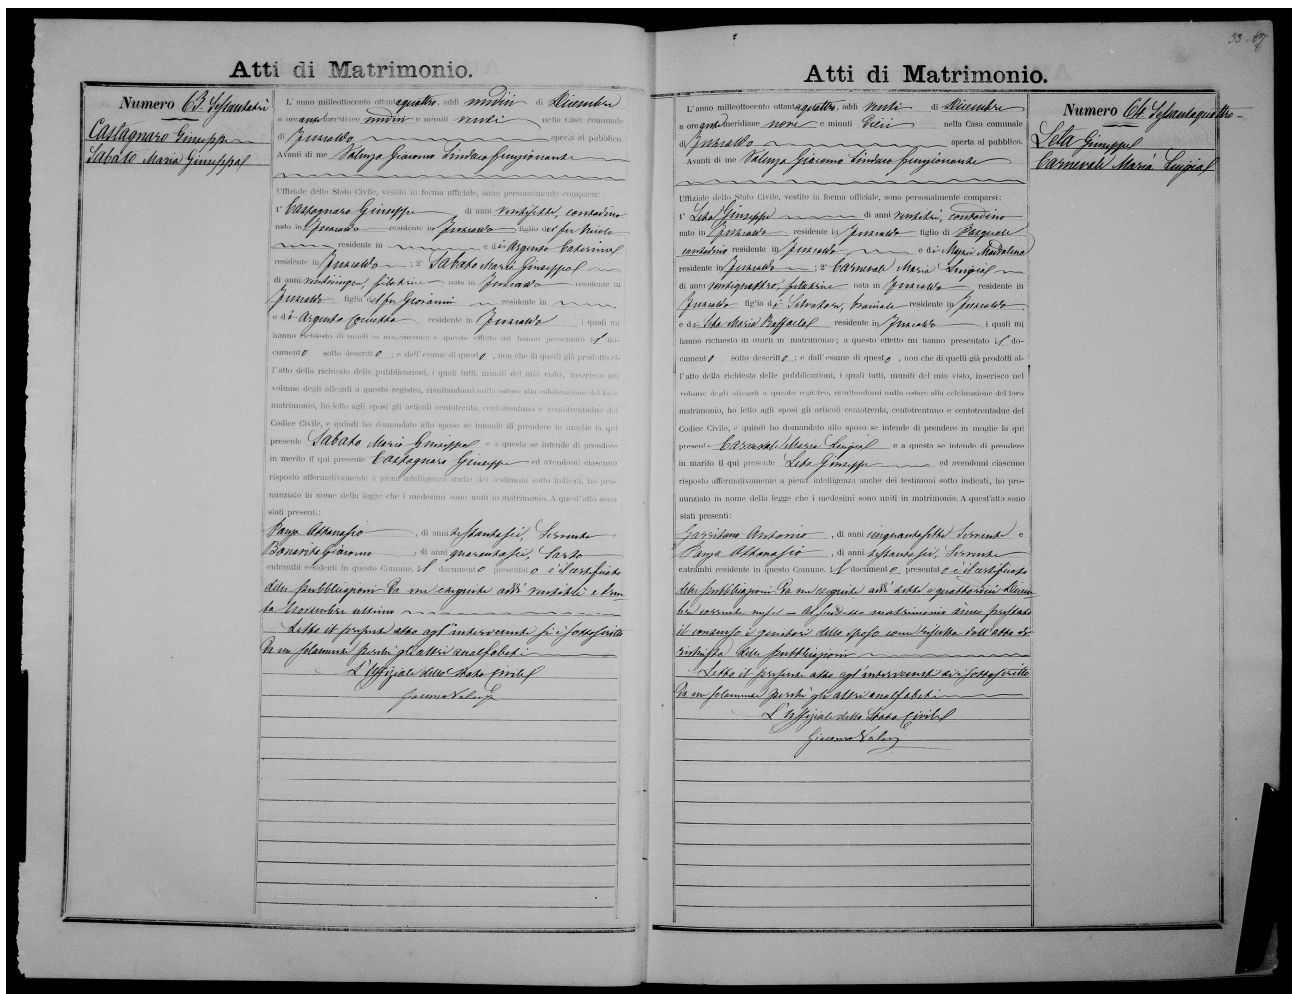 Atti di Matrimonio.
Numero 63. Sessantatrè
Castagnaro Giuseppe
Sabato Maria Giuseppa
L'anno milleottocento ottantaquattro, addì undici di Dicembre
a ore antimeridiane undici e minuti venti nella Casa comunale
di aperta al pubblico.
Avanti di me Valenza Giacomo Sindaco funzionante
Uffiziale dello Stato Civile, vestito in forma ufficiale, sono personalmente comparsi:
1° Castagnaro Giuseppe di anni ventisette, contadino
nato in residente in figlio del fu Nicola
residente in e di Argento Caterina
residente in ; 2° Sabato Maria Giuseppa
di anni filatrice nata in residente in
figlia del fu Giovanni residente in
e di Argento residente in i quali mi
hanno richiesto di unirli in matrimonio; a questo effetto mi hanno presentato il do-
cumento sotto descritto; e dall'esame di questo, non che di quelli già prodotti al-
l'atto della richiesta delle pubblicazioni, i quali tutti, muniti del mio visto, inserisco nel
volume degli allegati a questo registro, risultandomi nulla ostare alla celebrazione del loro
matrimonio, ho letto agli sposi gli articoli centotrenta, centotrentuno e centotrentadue del
Codice Civile, e quindi ho domandato allo sposo se intende di prendere in moglie la qui
presente Sabato Maria Giuseppa e a questa se intende di prendere
in marito il qui presente Castagnaro Giuseppe ed avendomi ciascuno
risposto affermativamente a piena intelligenza anche dei testimoni sotto indicati, ho pro-
nunziato in nome della legge che i medesimi sono uniti in matrimonio. A quest'atto sono
stati presenti:
Panza Attanasio, di anni sessantasei, Serviente e
Bonavita Giacomo, di anni quarantasei, Sarto
entrambi residenti in questo Comune. Il documento presentato è il certificato
delle pubblicazioni da me eseguite addì ventitrè e tren-
ta Novembre ultimo
Letto il presente atto agl'intervenuti si è sottoscritto
da me solamente perchè gli altri analfabeti
L'Uffiziale dello Stato Civile
Giacomo Valenza
Atti di Matrimonio.
Numero 64. Sessantaquattro
Leta Giuseppe
Carnevale Maria Luigia
L'anno milleottocento ottantaquattro, addì venti di Dicembre
a ore antimeridiane nove e minuti dieci nella Casa comunale
di aperta al pubblico.
Avanti di me Valenza Giacomo Sindaco funzionante
Uffiziale dello Stato Civile, vestito in forma ufficiale, sono personalmente comparsi:
1° Leta Giuseppe di anni ventitrè, contadino
nato in residente in figlio di Pasquale
contadino residente in e di Maddalena
residente in ; 2° Carnevale Maria Luigia
di anni ventiquattro, filatrice nata in residente in
figlia di Salvatore, residente in
e di Leta Maria Raffaela residente in i quali mi
hanno richiesto di unirli in matrimonio; a questo effetto mi hanno presentato il do-
cumento sotto descritto; e dall'esame di questo, non che di quelli già prodotti al-
l'atto della richiesta delle pubblicazioni, i quali tutti, muniti del mio visto, inserisco nel
volume degli allegati a questo registro, risultandomi nulla ostare alla celebrazione del loro
matrimonio, ho letto agli sposi gli articoli centotrenta, centotrentuno e centotrentadue del
Codice Civile, e quindi ho domandato allo sposo se intende di prendere in moglie la qui
presente Carnevale Maria Luigia e a questa se intende di prendere
in marito il qui presente Leta Giuseppe ed avendomi ciascuno
risposto affermativamente a piena intelligenza anche dei testimoni sotto indicati, ho pro-
nunziato in nome della legge che i medesimi sono uniti in matrimonio. A quest'atto sono
stati presenti:
Garritano Antonio, di anni cinquantasette Serviente e
Panza Attanasio, di anni sessantasei, Serviente
entrambi residenti in questo Comune. Il documento presentato è il certificato
delle pubblicazioni da me eseguite addì sette e quattordici Dicem-
bre corrente mese — Al suddetto matrimonio hanno prestato
il consenso i genitori dello sposo come risulta dall'atto di
richiesta delle pubblicazioni
Letto il presente atto agl'intervenuti si è sottoscritto
da me solamente perchè gli altri analfabeti
L'Uffiziale dello Stato Civile
Giacomo Valenza